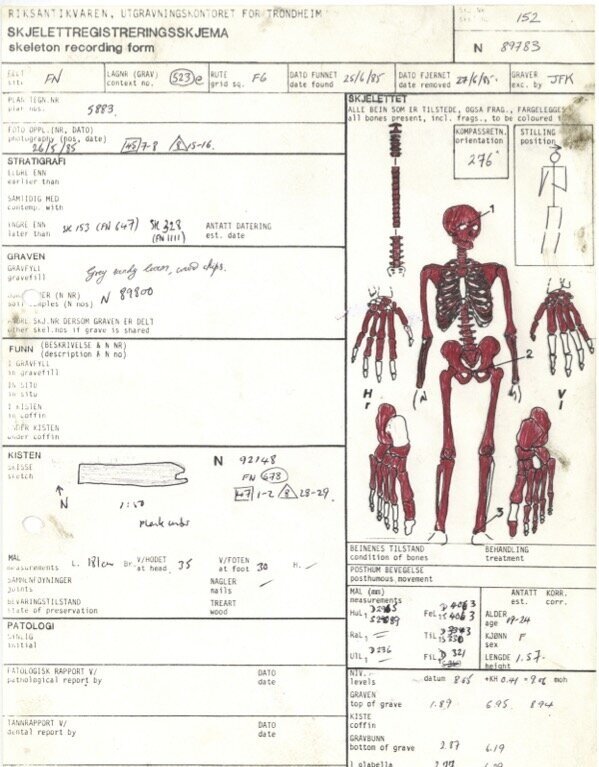 RIKSANTIKVAREN, UTGRAVNINGSKONTORET FOR TRONDHEIM
SKJELETTREGISTRERINGSSKJEMA
skeleton recording form
152
N 89783
FELT FN
LAGNR (GRAV) 523 e
context no.
RUTE FG
grid sq.
DATO FUNNET 25/6/85
date found
DATO FJERNET 27/6/85.
date removed
GRAVER JFK
exc. by
PLAN TEGN.NR
plan nos. 5883
FOTO OPPL.(NR, DATO)
photography (nos, date)
26/5/85 45 7-8 8 15-16.
STRATIGRAFI
ELDRE ENN
earlier than
SAMTIDIG MED
contemp. with
YNGRE ENN
later than SK 153 (FN 647) SK 328
(FN 1111)
ANTATT DATERING
est. date
GRAVEN
GRAVFYLL
gravefill Grey sandy loam, wood chips.
(N NR) N 89800
(N nos)
ANDRE SKJ.NR DERSOM GRAVEN ER DELT
other skel.nos if grave is shared
FUNN (BESKRIVELSE & N NR)
(description & N no)
I GRAVFYLL
in gravefill
IN SITU
in situ
I KISTEN
in coffin
UNDER KISTEN
under coffin
KISTEN
SKISSE
sketch
N 92148
FN 678
47 1-2 8 28-29.
N
1:50
MÅL
measurements L. 181cm Br. V/HODET
at head 35
V/FOTEN
at foot 30 H.
SAMMENFØYNINGER
joints
NAGLER
nails
BEVARINGSTILSTAND
state of preservation
TREART
wood
PATOLOGI
SYNLIG
initial
PATOLOGISK RAPPORT V/
pathological report by
DATO
date
TANNRAPPORT V/
dental report by
DATO
date
SKJELETTET
ALLE BEIN SOM ER TILSTEDE, OGSÅ FRAG., FARGELEGGES
all bones present, incl. frags., to be coloured
KOMPASSRETN.
orientation
276°
STILLING
position
1
2
3
H
r
V
l
BEINENES TILSTAND
condition of bones
BEHANDLING
treatment
POSTHUM BEVEGELSE
posthumous movement
MÅL (mm)
measurements
HuL
FeL
RaL
TiL
UlL D 236
FiL D 321
ANTATT
est.
KORR.
corr.
ALDER
age 19-24
KJØNN F
sex
LENGDE 1.57
height
NIV.
levels
datum 8.65 +KH 0.41 = 9.06 moh
GRAVEN
top of grave 1.89 6.95 8.94
KISTE
coffin
GRAVBUNN
bottom of grave 2.87 6.19